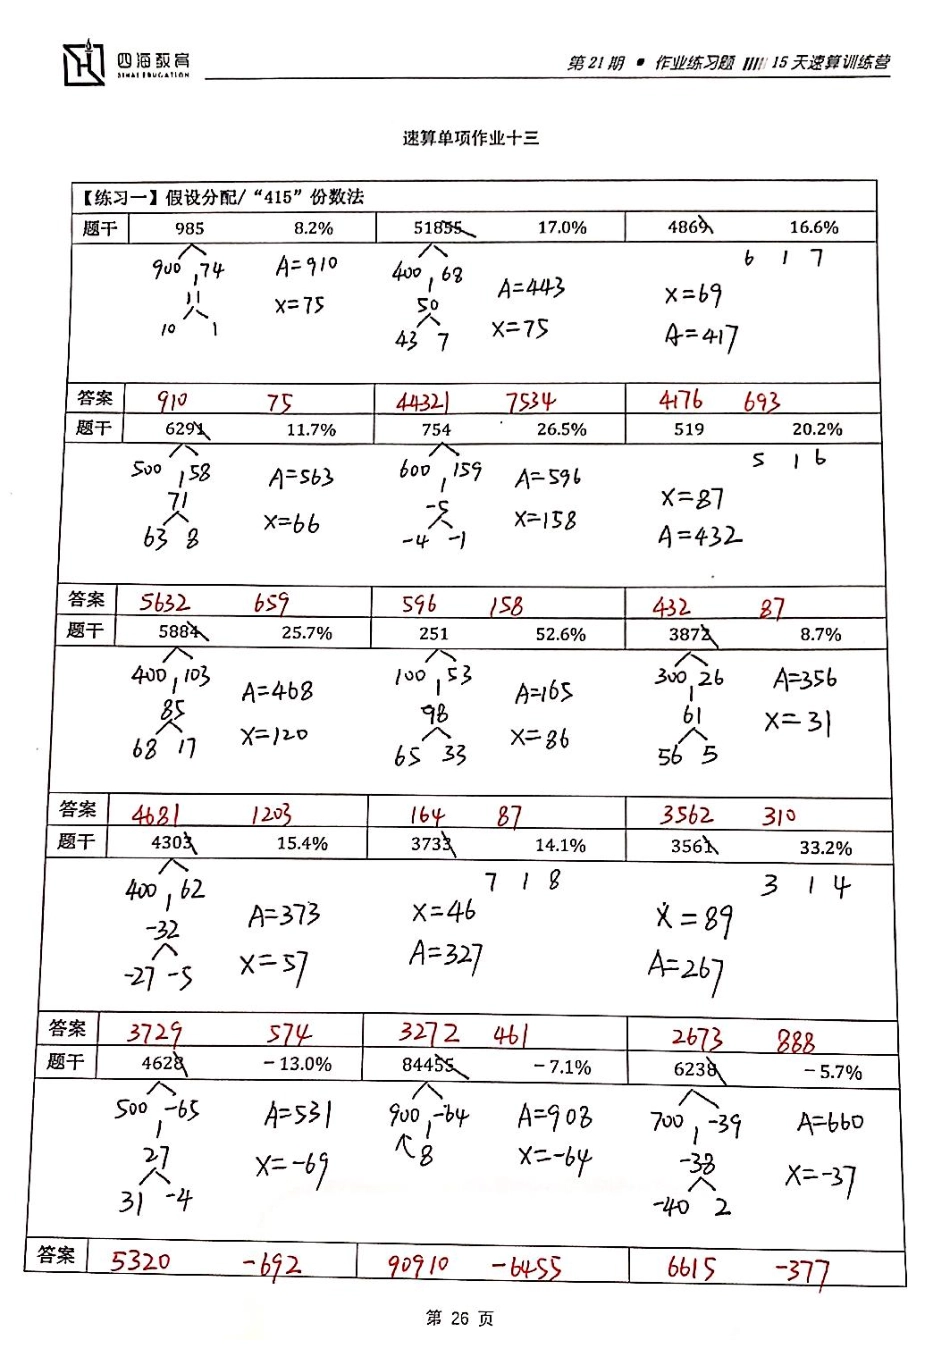 四海教育
SIHAI EDUCATION
第21期 • 作业练习题 15天速算训练营
速算单项作业十三
【练习一】假设分配/“415”份数法
题干 985 8.2% 51855 17.0% 4869 16.6%
900 , 74 A=910 400 , 68 A=443 6 1 7
11 X=75 50 X=75 X=69
10 1 43 7 A=417
答案 910 75 44321 7534 4176 693
题干 6291 11.7% 754 26.5% 519 20.2%
500 , 58 A=563 600 , 159 A=596 5 1 6
71 X=66 -5 X=158 X=87
63 8 -4 -1 A=432
答案 5632 659 596 158 432 87
题干 5884 25.7% 251 52.6% 3872 8.7%
400 , 103 A=468 100 , 53 A=165 300 , 26 A=356
85 X=120 98 X=86 61 X=31
68 17 65 33 56 5
答案 4681 1203 164 87 3562 310
题干 4303 15.4% 3733 14.1% 3561 33.2%
400 , 62 A=373 7 1 8 3 1 4
-32 X=57 X=46 X=89
-27 -5 A=327 A=267
答案 3729 574 3272 461 2673 888
题干 4628 －13.0% 84455 －7.1% 6238 －5.7%
500 -65 A=531 900 , -64 A=908 700 , -39 A=660
27 X=-69 8 X=-64 -38 X=-37
31 -4 -40 2
答案 5320 -692 90910 -6455 6615 -377
第 26 页